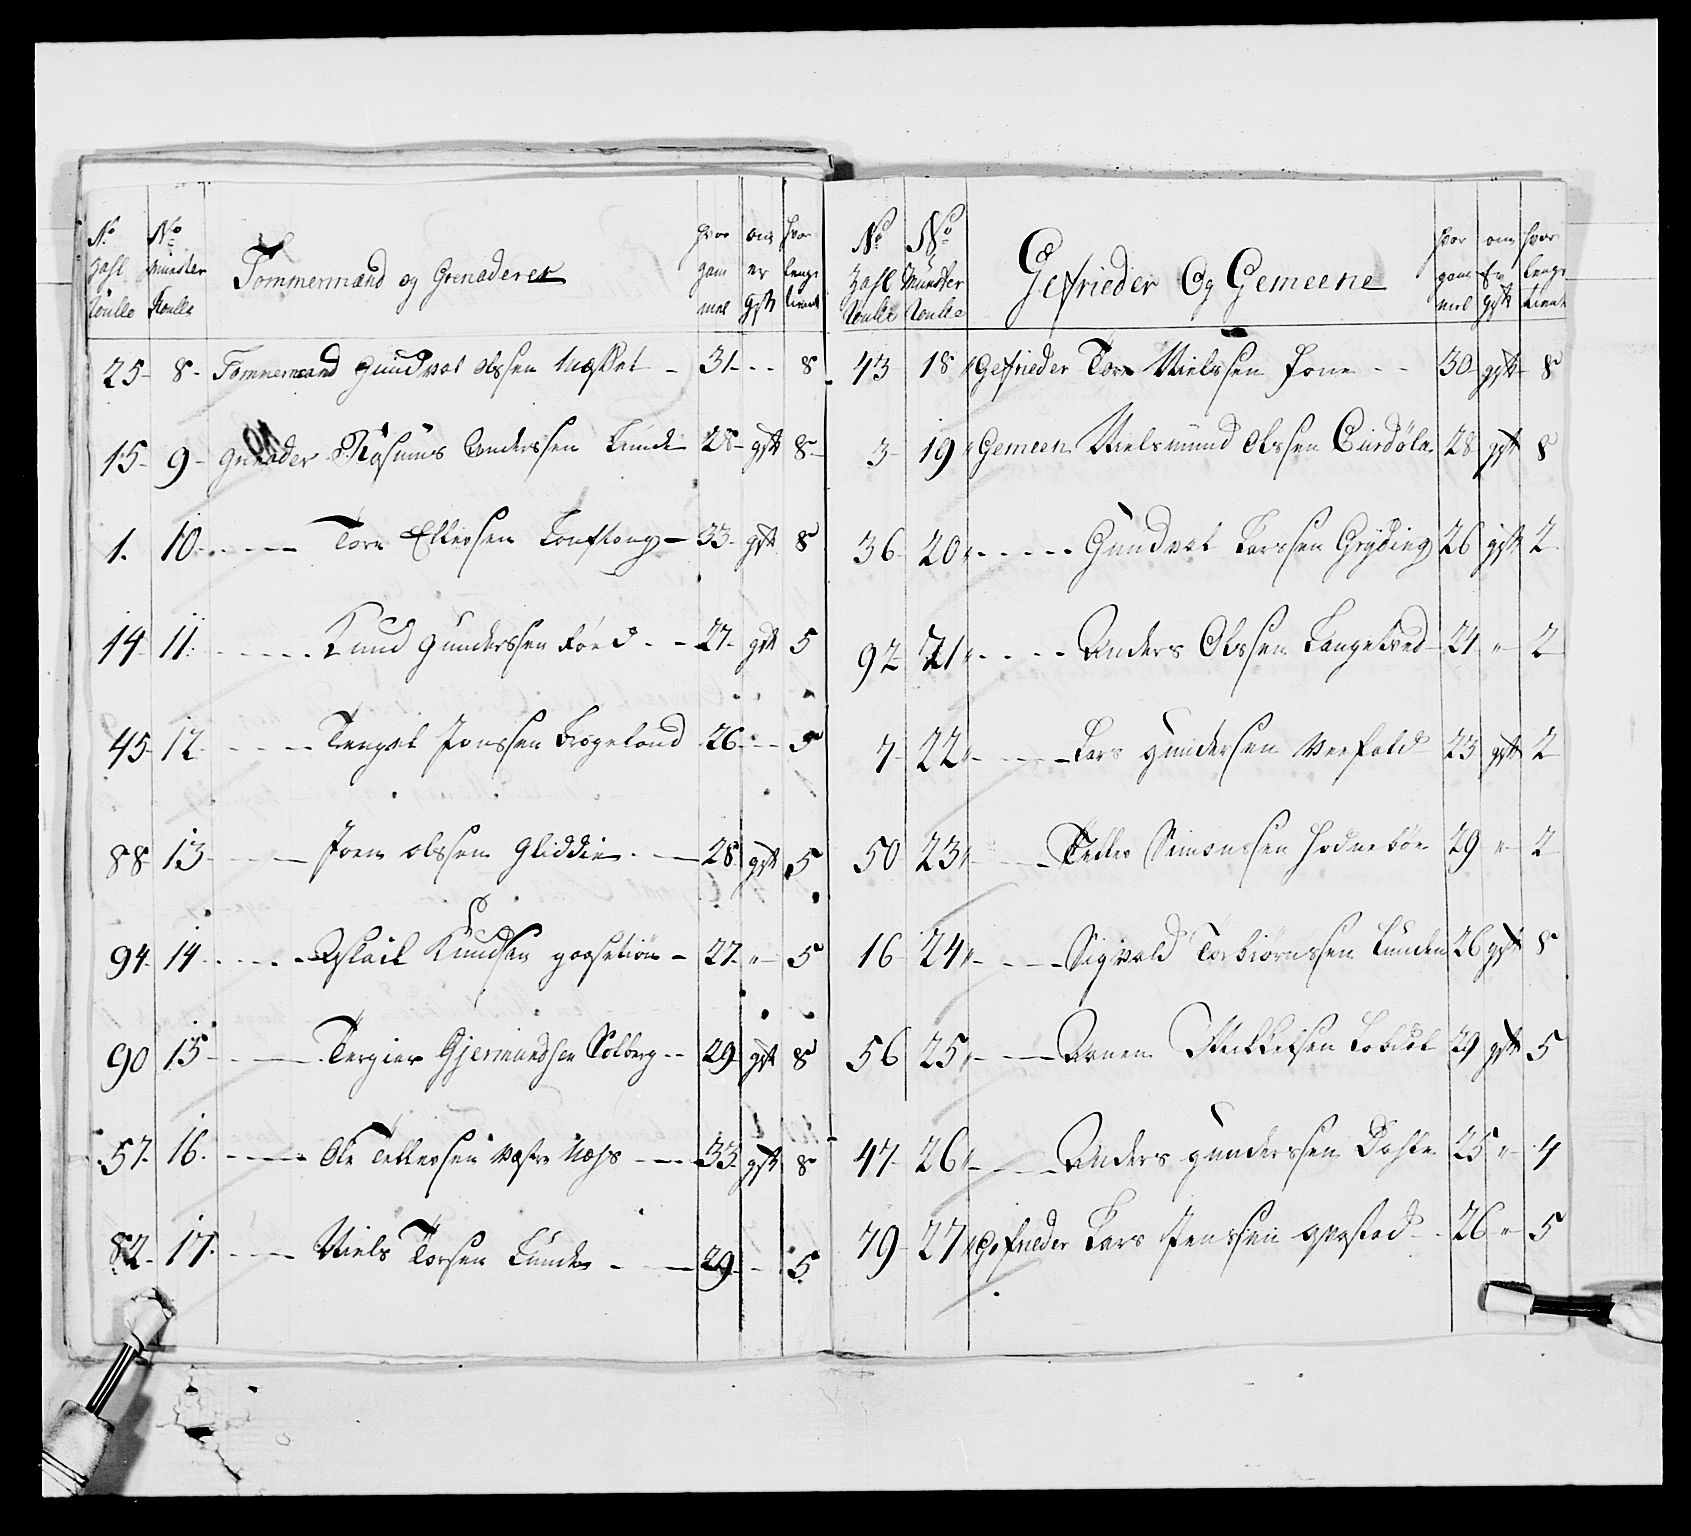 No Zahl Roulle | No Munster Roulle | Tommermænd og Grenaderer | hvor gam mel | om er gift | hvor lenge tient
25 - 8 - Tommermand Gundvol Olssen - 31 - - 8
15 - 9 - Grenader Rasmus Anderssen Lunde 28 - gift 8 -
1. 10 - - - - Tore Ellefsen - 33 - gift 8
14 - 11 - - - - Knud Gunderssen - - 27 - gift 5
45 - 12 - - - - Tengel Jonssen Birgeland 26 - - 5
88 - 13 - - - Joen Olssen Gliddie - - 28 gift 5
94 - 14 - - - - Aslach Knudsen - 27 - " - 5
90 15 - - - Tergier Gjermundsen Solberg - - 29 - gift 8
57. 16. - - - Ole Tellefsen Næss - - - 33 - gift 8
82 - 17. - - - Niels Torsen Lunde - - - 29 - - 5
No Zahl Roulle | No Munster Roulle | Gefrieder Og Gemeene | hvor gam mel | om Er gift | hvor lenge tient
43 18 " Gefrieder Tore Nielssen - - 30 gift - 8
3 - 19 " Gemeen Nielsmund Olssen 28 gift 8
36 - 20 " - - - - Gundvol Larssen Gryding 26 gift 2
92 21 " - - - - Anders Olssen Langeland - 24 " - 2
7 - 22 " - - - Lars Gundersen 23 gift 2
50 23 " - - - Tellef Simonssen Hodnebøe 29 - " - 2
16 - 24 " - - - Sigvald Torbiørnssen Lunden 26 gift 8
56 25 " - - - Aanen Mikkelsen 29 gift 5
47 - 26 " - - - Anders Gunderssen 25 " - 4
79 - 27 " Gefrieder Lars Jenssen - - 26 " - 5